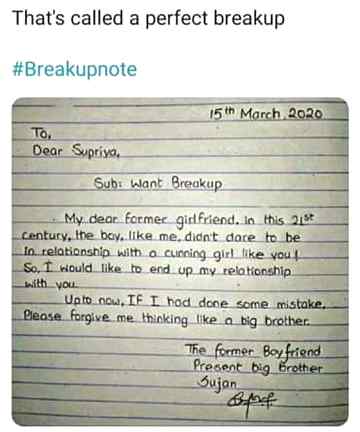 That's called a perfect breakup
#Breakupnote
15th March, 2020
To,
Dear Supriya,
Sub: Want Breakup
My dear former girlfriend, in this 21st
century, the boy, like me, didn't dare to be
in relationship with a cunning girl like you!
So, I would like to end up my relationship
with you.
Upto now, IF I had done some mistake,
Please forgive me thinking like a big brother.
The former Boyfriend
Present big Brother
Sujan